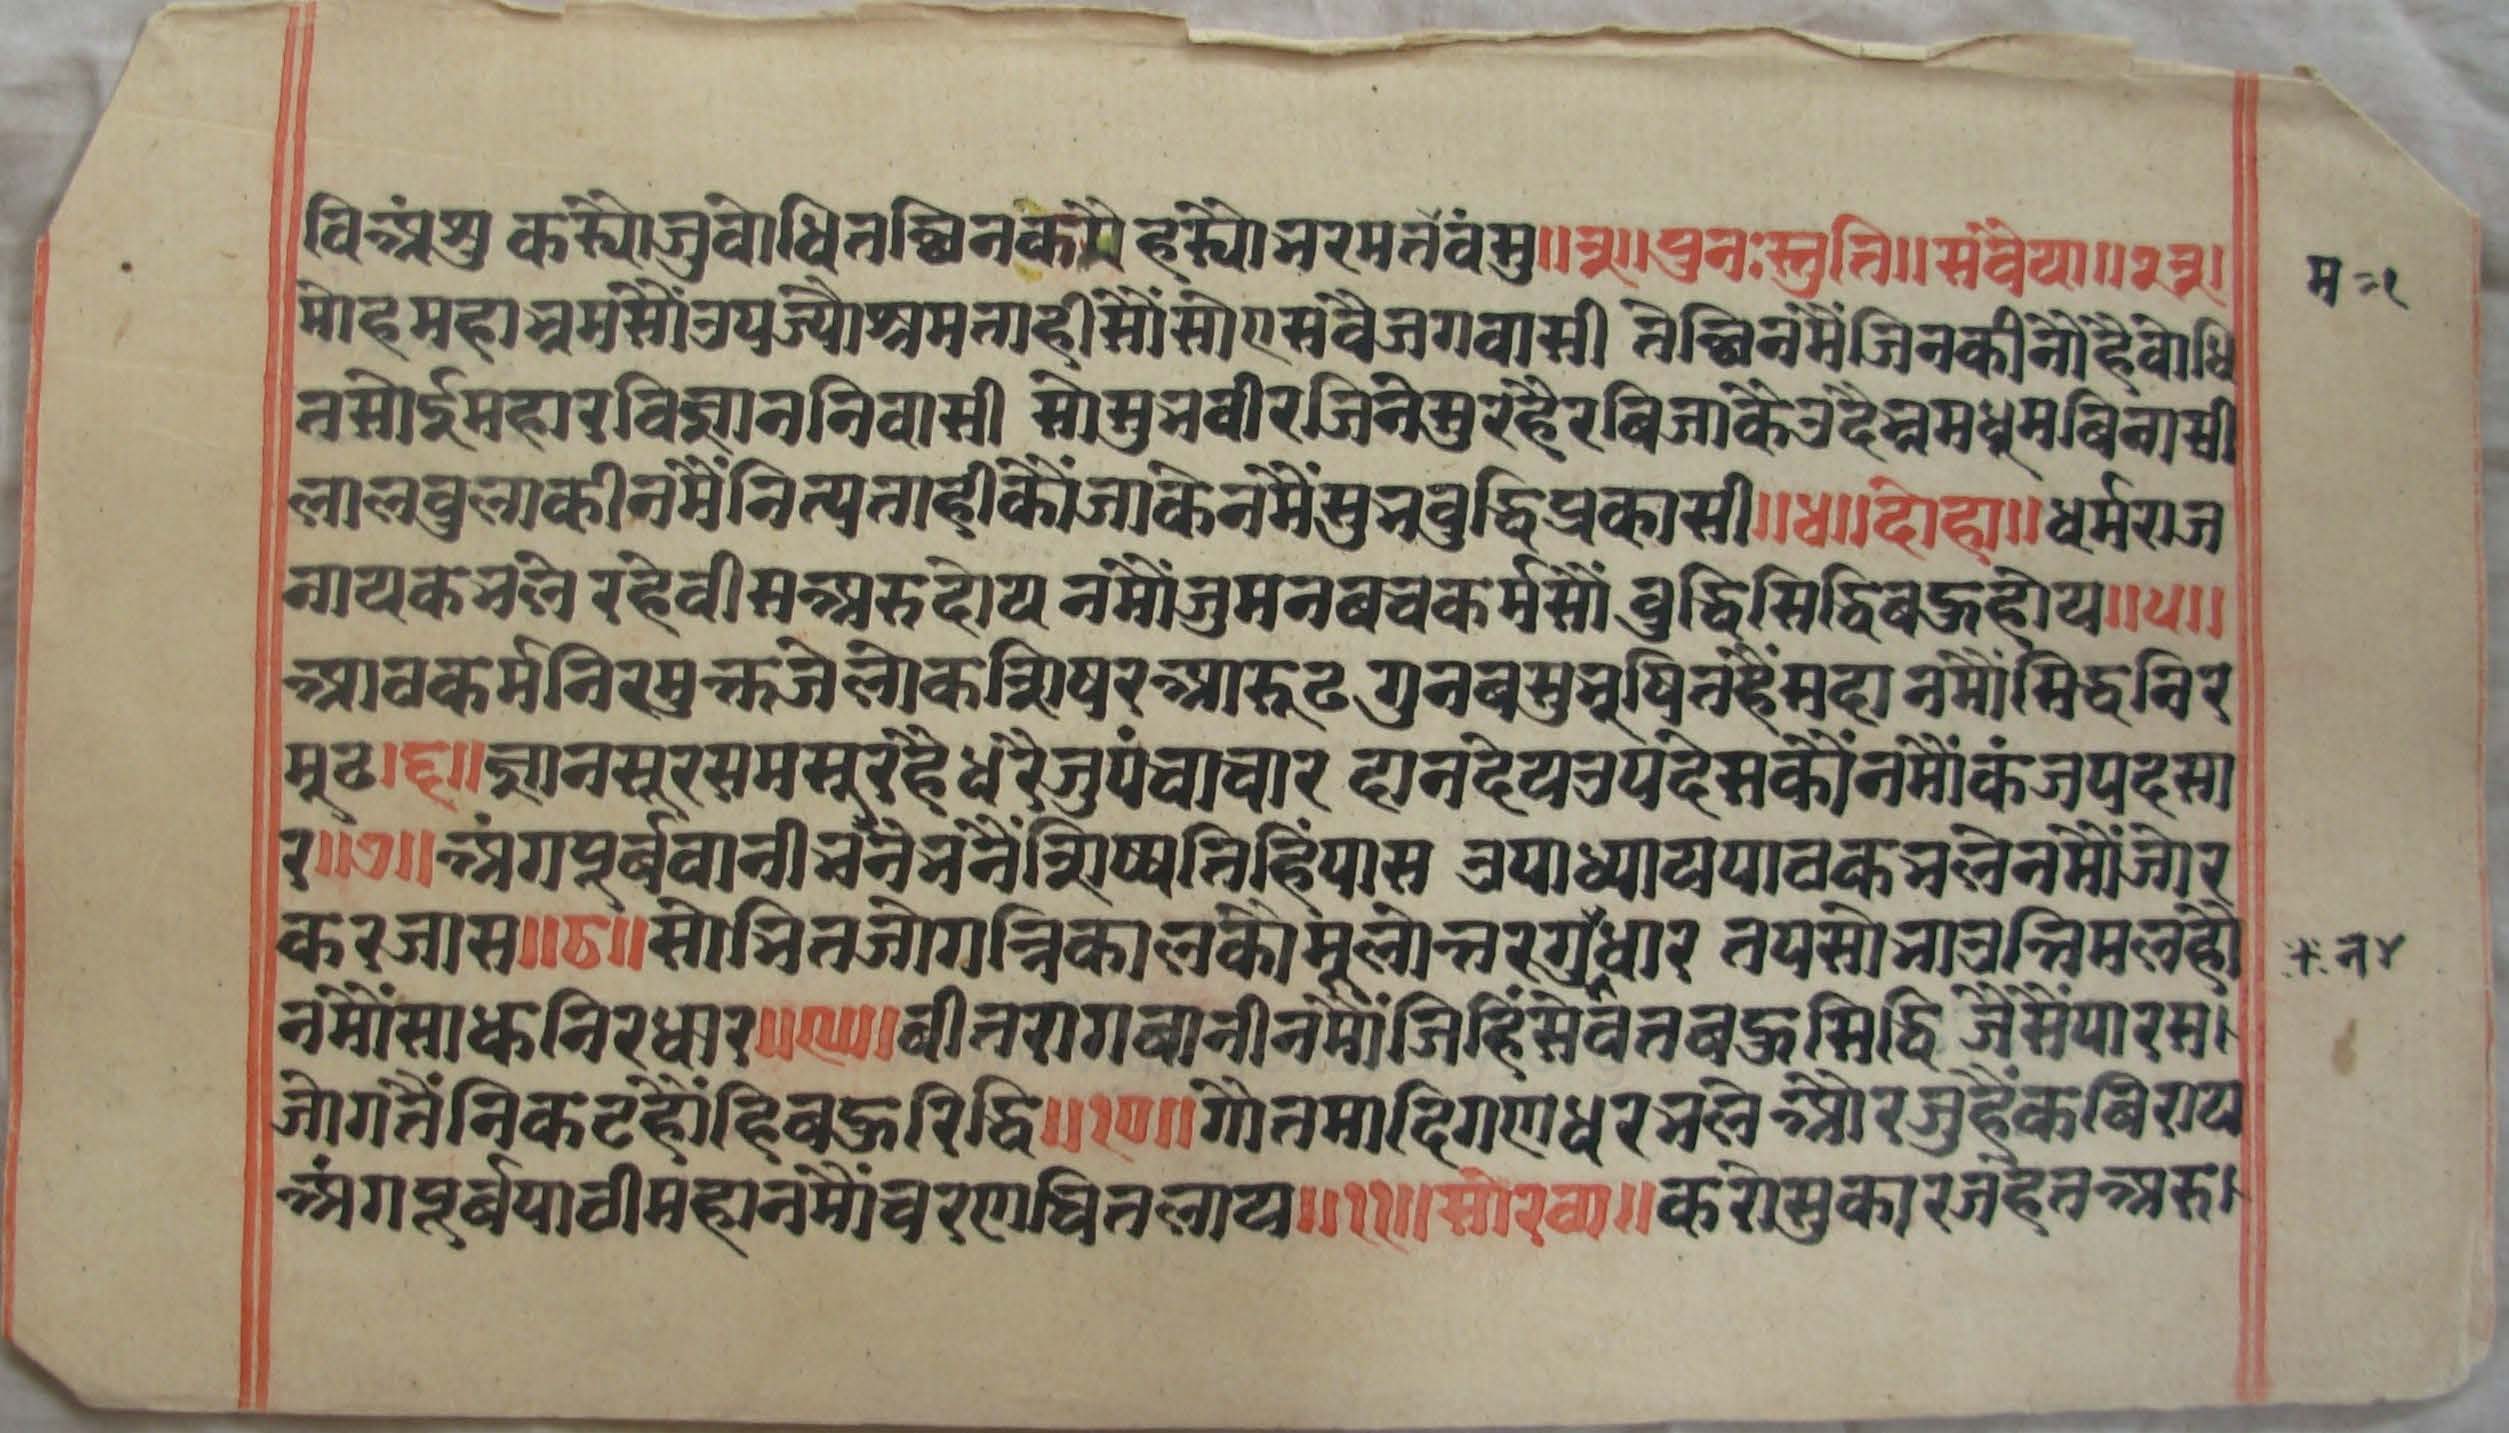 विअंशु कर्यौ जुवोधित छिनकमै हर्यौ भरमतमवंसु ॥३॥ पुनःस्तुति ॥ सवैया ॥२३॥
म १
मोह महाभ्रमसौं उपज्यौ भ्रम ताहीसौं सोए सवै जगवासी ते छिनमैं जिन कीनौं है वोधि
त सोई महा रवि ज्ञान निवासी सो सुभ वीर जिनेसुर है रबि जाकै उदै भ्रम धूम बिनासी
लाल वुलाकी नमैं नित्य ताहीकौं जाके नमैं सुभ वुद्धि प्रकासी ॥४॥ दोहा ॥ धर्मराज
नायक भले रहे वीस अरु दोय नमौं जु मन बच कर्मसौं वुद्धि सिद्धि बहु होय ॥५॥
आवकर्म निरमुक्त जे लोक शिषर आरूढ गुन बसु भूषित हैं महा नमौं सिद्ध निर
मूढ ॥६॥ ज्ञान सूर सम सूर है धरै जु पंचाचार दान देय उपदेसकौं नमौं कंज पद सा
र ॥७॥ अंग पूर्ब वानी भनै भनैं शिष्य तिहिं पास उपाध्याय पावक भले नमौं जोर
कर जास ॥८॥ सोभित जोग त्रिकालकौ मूलोत्तर गुधार तप सोभा उत्तिम लहौ
न ४
नमौं साधु निरधार ॥९॥ बीतराग बानी नमौं जिहिं सेवत बहु सिद्धि जैसैं पारस
जोगतैं निकट हौंहि वहु रिद्धि ॥१०॥ गौतमादि गणधर भले और जु हैं कबिराय
अंग पूर्ब पाठी महा नमौं चरण चित लाय ॥११॥ सोरठा ॥ करो सुकारज हेत अरु